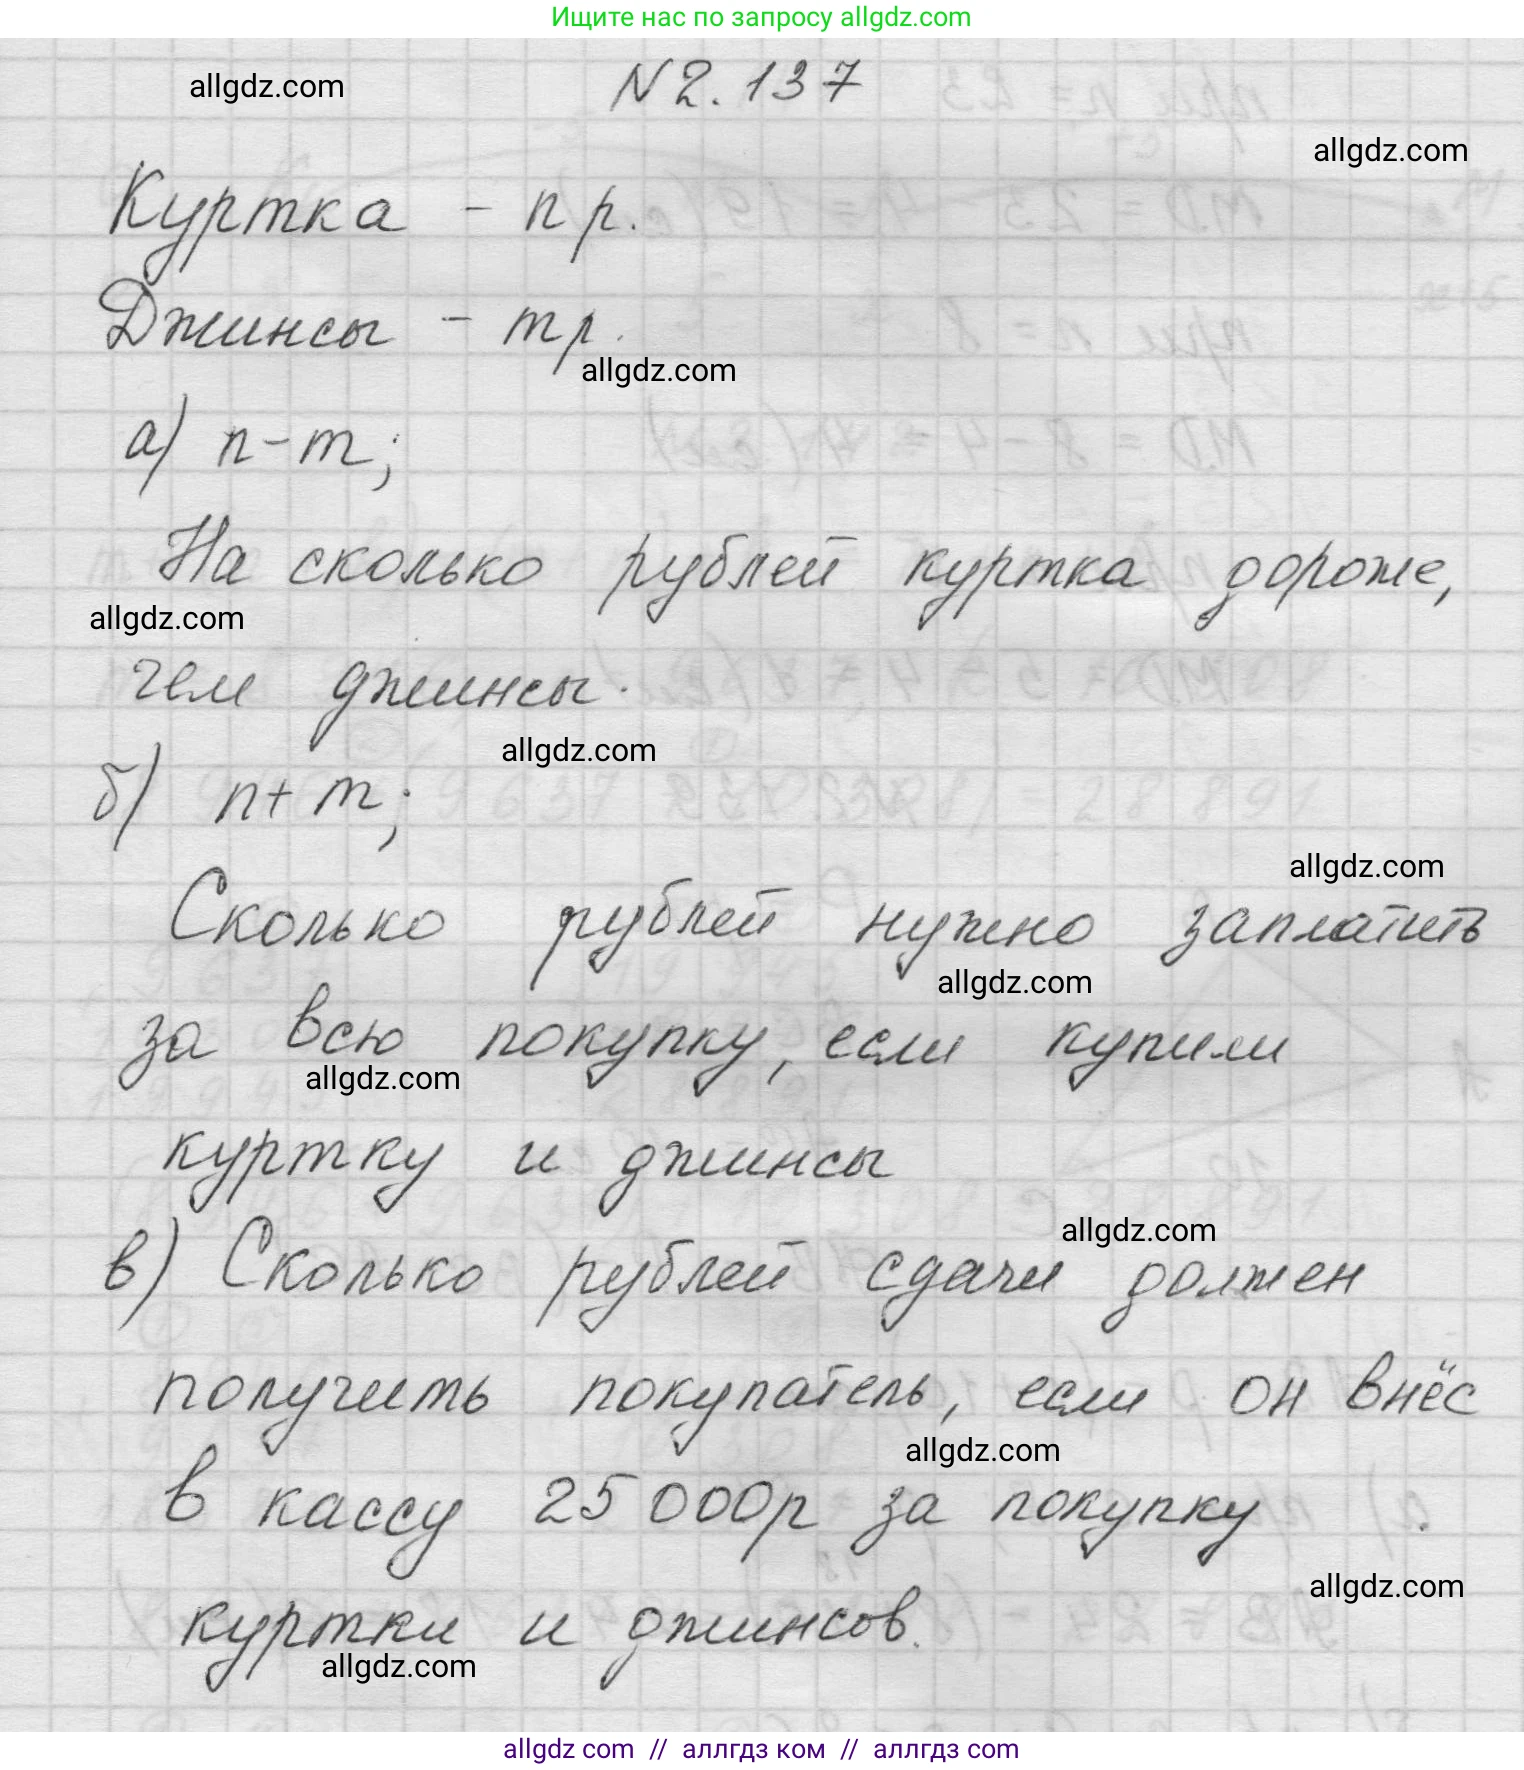 Ищите нас по запросу allgdz.com
allgdz.com
N 2.137
allgdz.com
Куртка - n р.
Джинсы - m р.
allgdz.com
а) n-m;
На сколько рублей куртка дороже,
allgdz.com
чем джинсы.
allgdz.com
б) n+m;
allgdz.com
Сколько рублей нужно заплатить
allgdz.com
за всю покупку, если купили
allgdz.com
куртку и джинсы
allgdz.com
в) Сколько рублей сдачи должен
получить покупатель, если он внёс
allgdz.com
в кассу 25 000р за покупку
allgdz.com
куртки и джинсов.
allgdz.com
allgdz com // аллгдз ком // аллгдз com